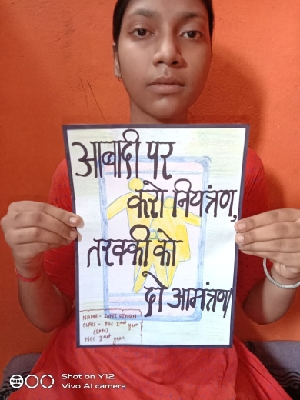 आबादी पर
करो नियंत्रण,
तरक्की को
दो आमंत्रण
NAME -
CLASS - BSC 2nd year
NCC 2nd year
Shot on Y12
Vivo AI camera